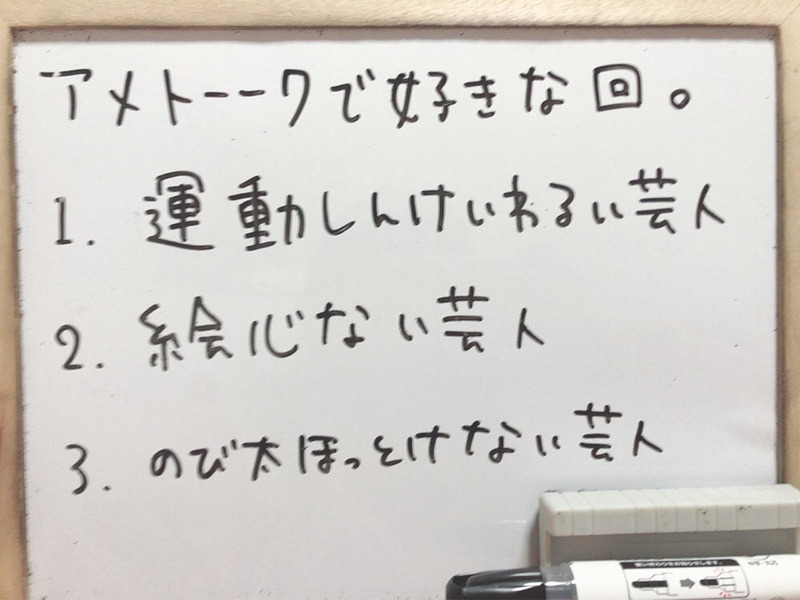 アメトーークで好きな回。
1. 運動しんけいわるい芸人
2. 絵心ない芸人
3. のび太ほっとけない芸人